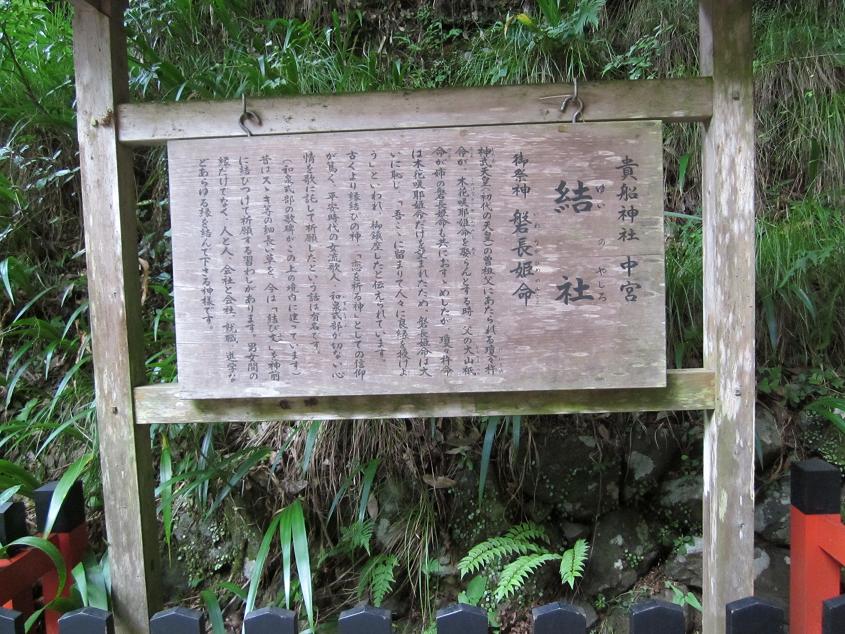 貴船神社 中宮
結社
けいのやしろ
御祭神 磐長姫命
いわながひめのみこと
神武天皇(初代の天皇)の曽祖父にあたられる瓊々杵
命が、木花咲耶姫命を娶らんとする時、父の大山祇
命が姉の磐長姫命も共におすゝめしたが、瓊々杵命
は木花咲耶姫命だけを望まれたため、磐長姫命は大
いに恥じ、「吾ここに留まりて人々に良縁を授けよ
う」といわれ、御鎮座したと伝えられています。
古くより縁結びの神、「恋を祈る神」としての信仰
が篤く、平安時代の女流歌人 和泉式部が切ない心
情を歌に託して祈願したという話は有名です。
(和泉式部の歌碑がこの上の境内に建っています)
昔はススキ等の細長い草を、今は「結び文」を神前
に結びつけて祈願する習わしがあります。男女間の
縁だけでなく、人と人、会社と会社、就職、進学な
どあらゆる縁を結んで下さる神様です。